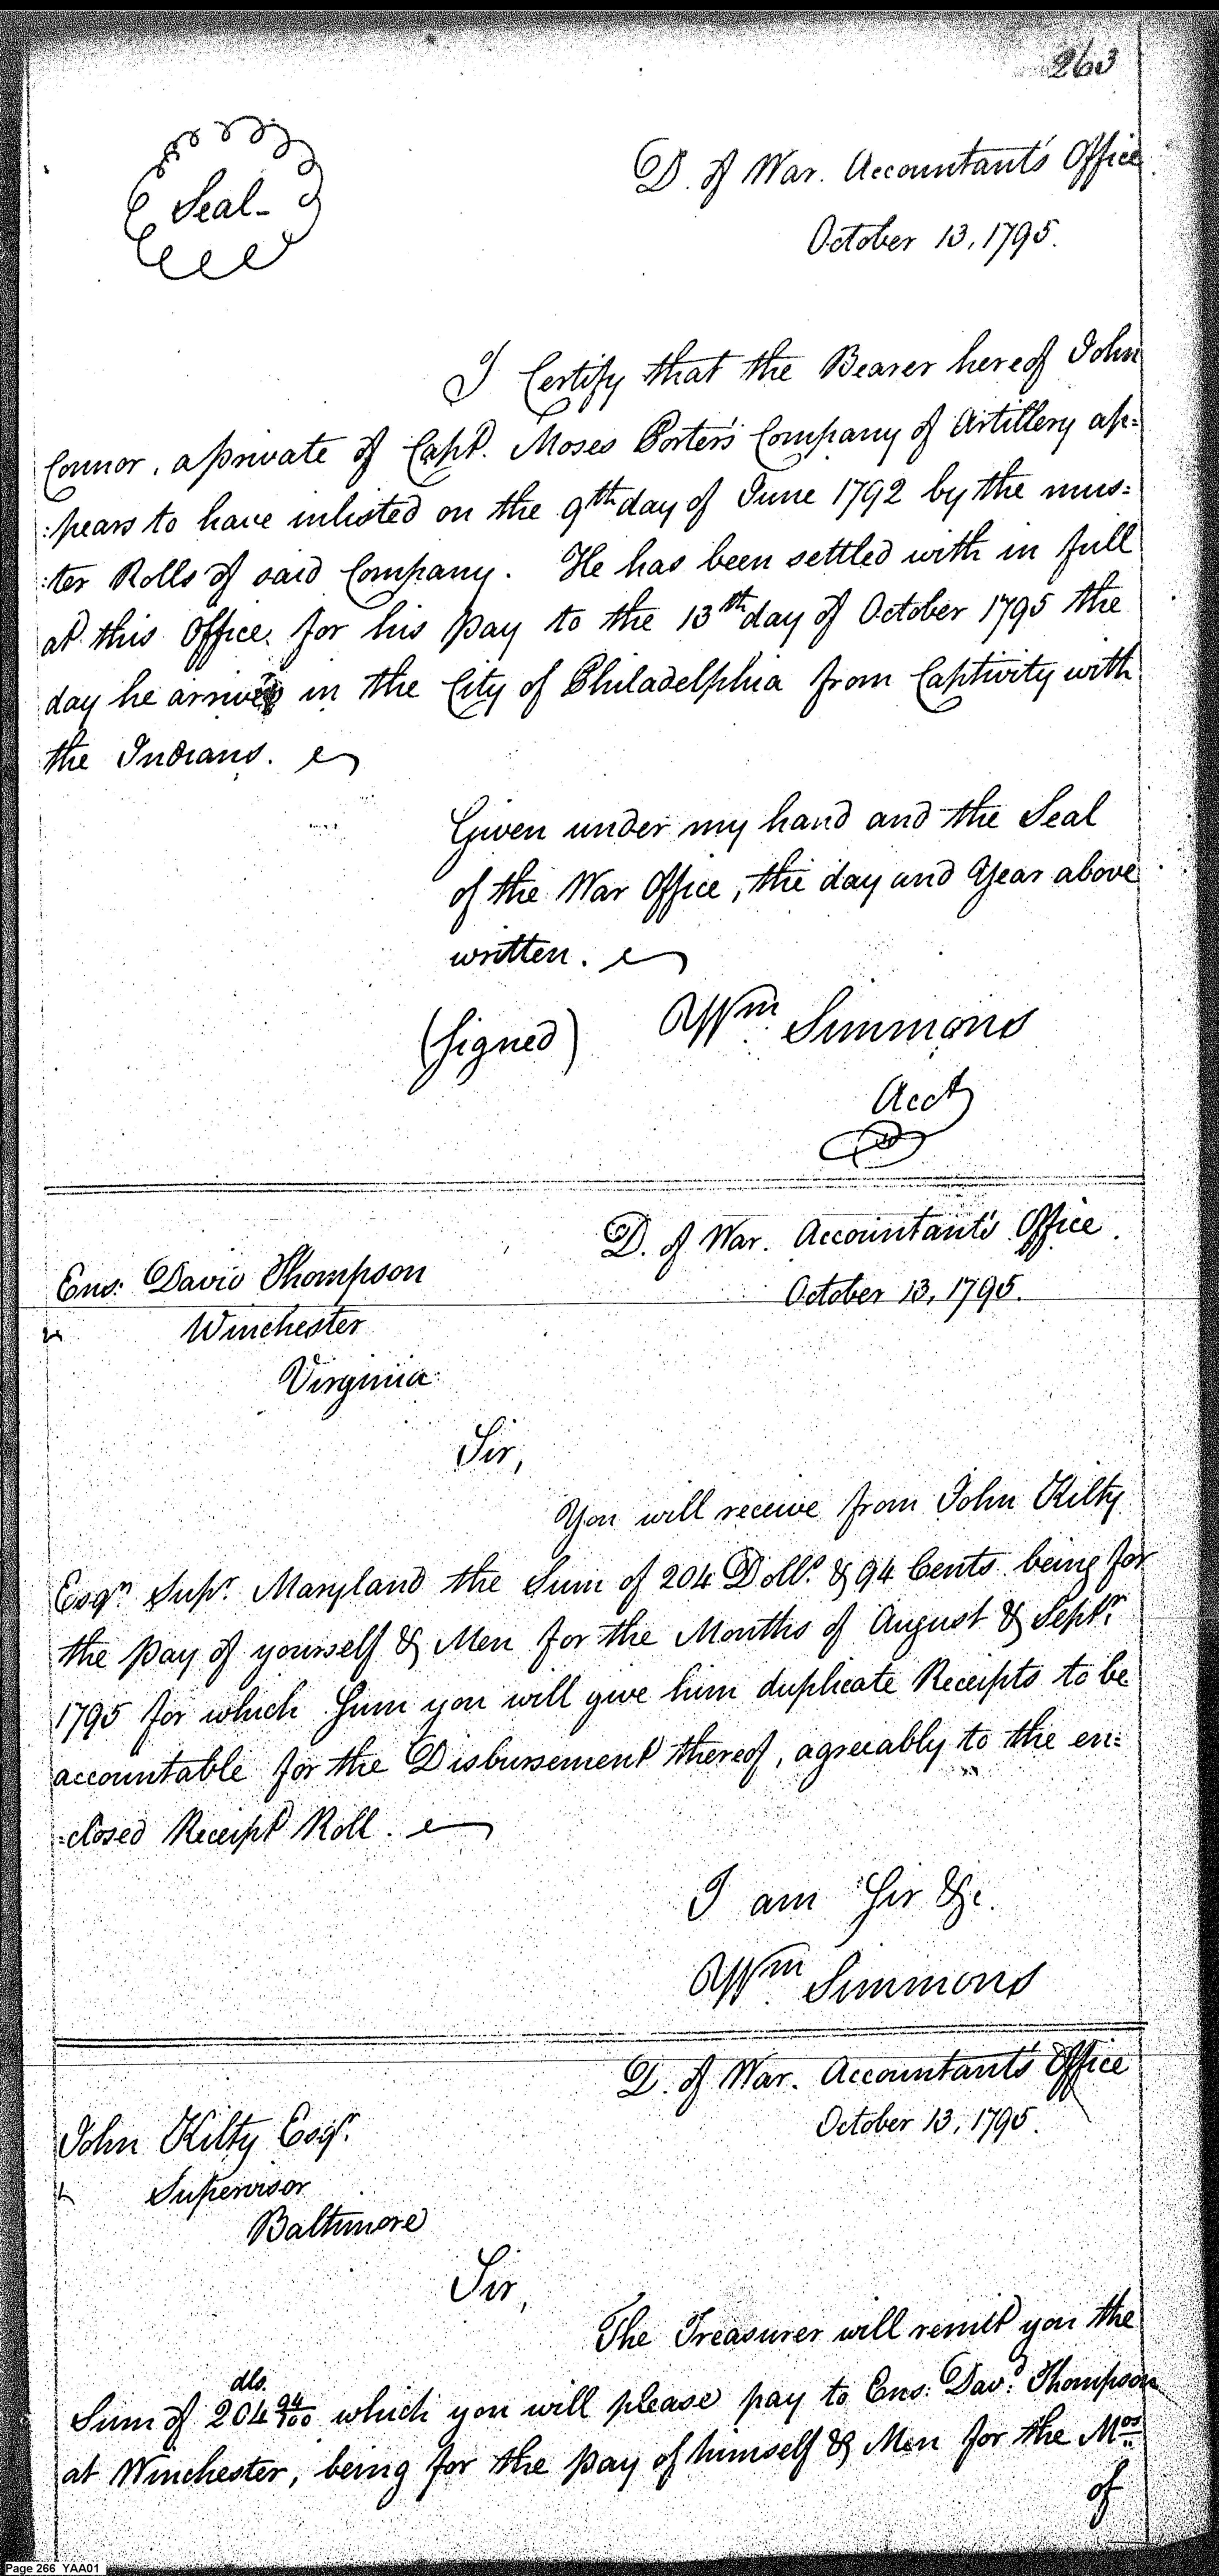 263
Seal-
D. of War. Accountant's Office
October 13, 1795.
I Certify that the Bearer hereof John
Connor, a private of Capt. Moses Porter's Company of Artillery ap=
:pears to have inlisted on the 9th day of June 1792 by the mus=
:ter Rolls of said Company. He has been settled with in full
at this Office for his pay to the 13th day of October 1795 the
day he arrived in the City of Philadelphia from Captivity with
the Indians.
Given under my hand and the Seal
of the War Office, the day and Year above
written.
(Signed) Wm Simmons
Acct
D. of War. Accountant's Office.
Ens: David Thompson
October 13, 1795.
Winchester
Virginia
Sir,
You will receive from John Kilty
Esqr. Supr. Maryland the Sum of 204 Dolls. & 94 Cents being for
the pay of yourself & Men for the Months of August & Septr.
1795 for which Sum you will give him duplicate Receipts to be
accountable for the Disbursement thereof, agreeably to the en=
:closed Receipt Roll.
I am Sir &c.
Wm Simmons
D. of War. Accountant's Office
October 13, 1795.
John Kilty Esqr.
Supervisor
Baltimore
Sir,
The Treasurer will remit you the
dls.
Sum of 204 94/100 which you will please pay to Ens: Davd. Thompson
at Winchester, being for the pay of himself & Men for the Mos.
of
Page 266 YAA01